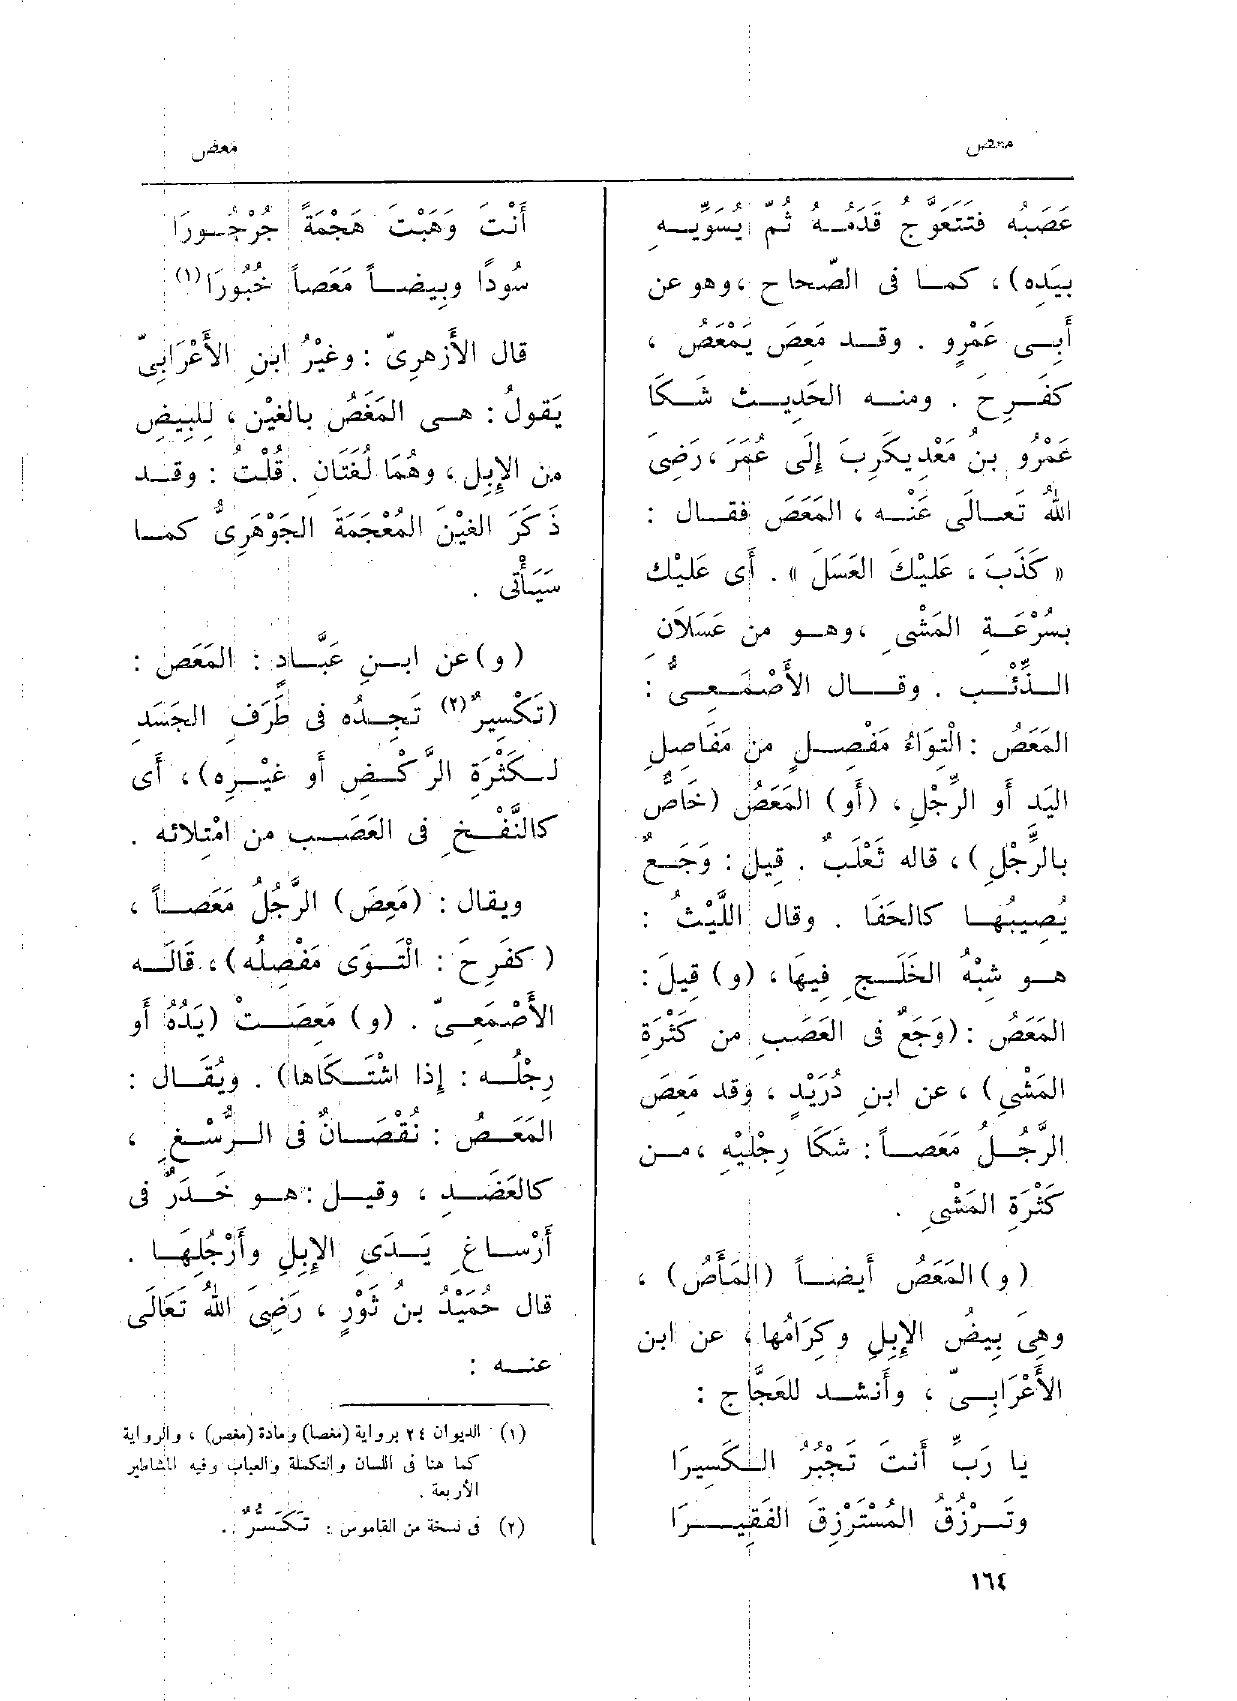 معص
معص
عَصَبُه فتَتَعَوَّجُ قَدَمُهُ ثُمّ يُسَوِّيـه
بيَدِه) ، كمـا فى الصّحاح ، وهو عن
أَبِـى عَمْرٍو . وقـد مَعِصَ يَمْعَصُ ،
كفَـرِحَ . ومنـه الحَدِيـث شَـكَا
عَمْرُو بنُ مَعْدِيكَرِبَ إِلَى عُمَرَ ، رَضِىَ
اللهُ تَعـالَى عَنْـه ، المَعَصَ فقـال :
« كَذَبَ ، عَلَيْكَ العَسَلَ » . أَى عَلَيْك
بسُرْعَـةِ المَشْىِ ، وهـو من عَسَلَانِ
الـذِّئْـب . وقـال الأَصْمَعِـىُّ :
المَعَصُ : الْتِوَاءُ مَفْصِـلٍ من مَفَاصِلِ
اليَدِ أَو الرِّجْلِ ، (أَو) المَعَصُ (خَاصٌّ
بالرِّجْلِ) ، قاله ثَعْلَبٌ . قِيلَ : وَجَـعٌ
يُصِيبُهـا كالحَفَا . وقال اللَّيْثُ :
هـو شِبْهُ الخَلَـجِ فِيهَا ، (و) قِيلَ :
المَعَصُ : (وَجَعٌ فى العَصَبِ من كَثْرَةِ
المَشْىِ) ، عن ابنِ دُرَيْدٍ ، وقد مَعِصَ
الرَّجُـلُ مَعَصـاً : شَكَا رِجْلَيْهِ ، مـن
كَثْرَةِ المَشْىِ .
(و) المَعَصُ أَيضـاً (المَأَصُ) ،
وهِىَ بِيضُ الإِبِلِ وكِرَامُها ، عن ابن
الأَعْرَابِـىّ ، وأَنشـد للعَجَّاج :
يا رَبِّ أَنتَ تَجْبُرُ الـكَسِيرَا
وتَـرْزُقُ المُسْتَرْزِقَ الفَقِيـرَا
أَنْتَ وَهَبْتَ هَجْمَةً جُرْجُـورَا
سُودًا وبِيضـاً مَعَصاً خُبُورَا (١)
قال الأَزهرِىّ : وغيْرُ ابنِ الأَعْرَابِىّ
يَقولُ : هـى المَغَصُ بالغيْن ، لِلبِيضِ
من الإِبِل ، وهُمَا لُغَتَانِ . قُلْتُ : وقـد
ذَكَرَ الغَيْنَ المُعْجَمَةَ الجَوْهَرِىُّ كمـا
سَيَأْتى .
(و) عن ابـنِ عَبَّـادٍ : المَعَصُ :
(تَكْسِيرٌ (٢) تَجِـدُه فى طَرَفِ الجَسَدِ
لـكَثْرَةِ الرَّكْـضِ أو غيْـرِه) ، أَى
كالنَّفْـخِ فى العَصَـبِ من امْتِلَائه .
ويقال : (مَعِصَ) الرَّجُلُ مَعَصـاً ،
(كفَرِحَ : الْتَـوَى مَفْصِلُه) ، قَالَـه
الأَصْمَعِـىّ . (و) مَعِصَـتْ (يَدُهُ أَو
رِجْلُـه : إِذا اشْتَـكَاها) . ويُقَـال :
المَعَـصُ : نُقْصَـانٌ فى الـرُّسْـغِ ،
كالعَضَـدِ ، وقيـل : هـو خَـدَرٌ فى
أَرْسـاغِ يَـدَىِ الإِبِلِ وأَرْجُلِهَـا .
قال حُمَيْدُ بنُ ثَوْرٍ ، رَضِىَ اللهُ تَعَالَى
عنـه :
(١) الديوان ٢٤ برواية (مغصا) ومادة (مغص) ، والرواية
كما هنا فى اللسان والتكملة والعباب وفيه المشاطير
الأربعة .
(٢) فى نسخة من القاموس : تَـكَسُّرٌ .
١٦٤